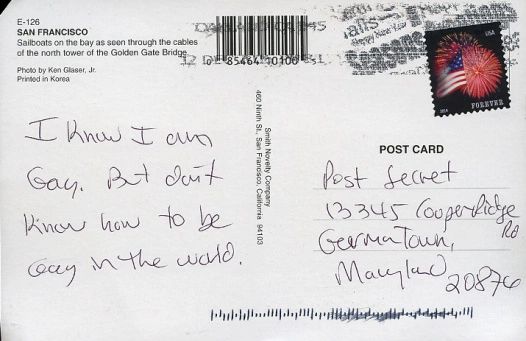 E-126
SAN FRANCISCO
Sailboats on the bay as seen through the cables
of the north tower of the Golden Gate Bridge.
Photo by Ken Glaser, Jr.
Printed in Korea
85464 10106
USA
2014
FOREVER
I Know I am
Gay. But don't
Know how to be
Gay in the world.
Smith Novelty Company
460 Ninth St., San Francisco, California 94103
POST CARD
Post Secret
13345 Copper Ridge
Rd
Germantown,
Maryland
20876